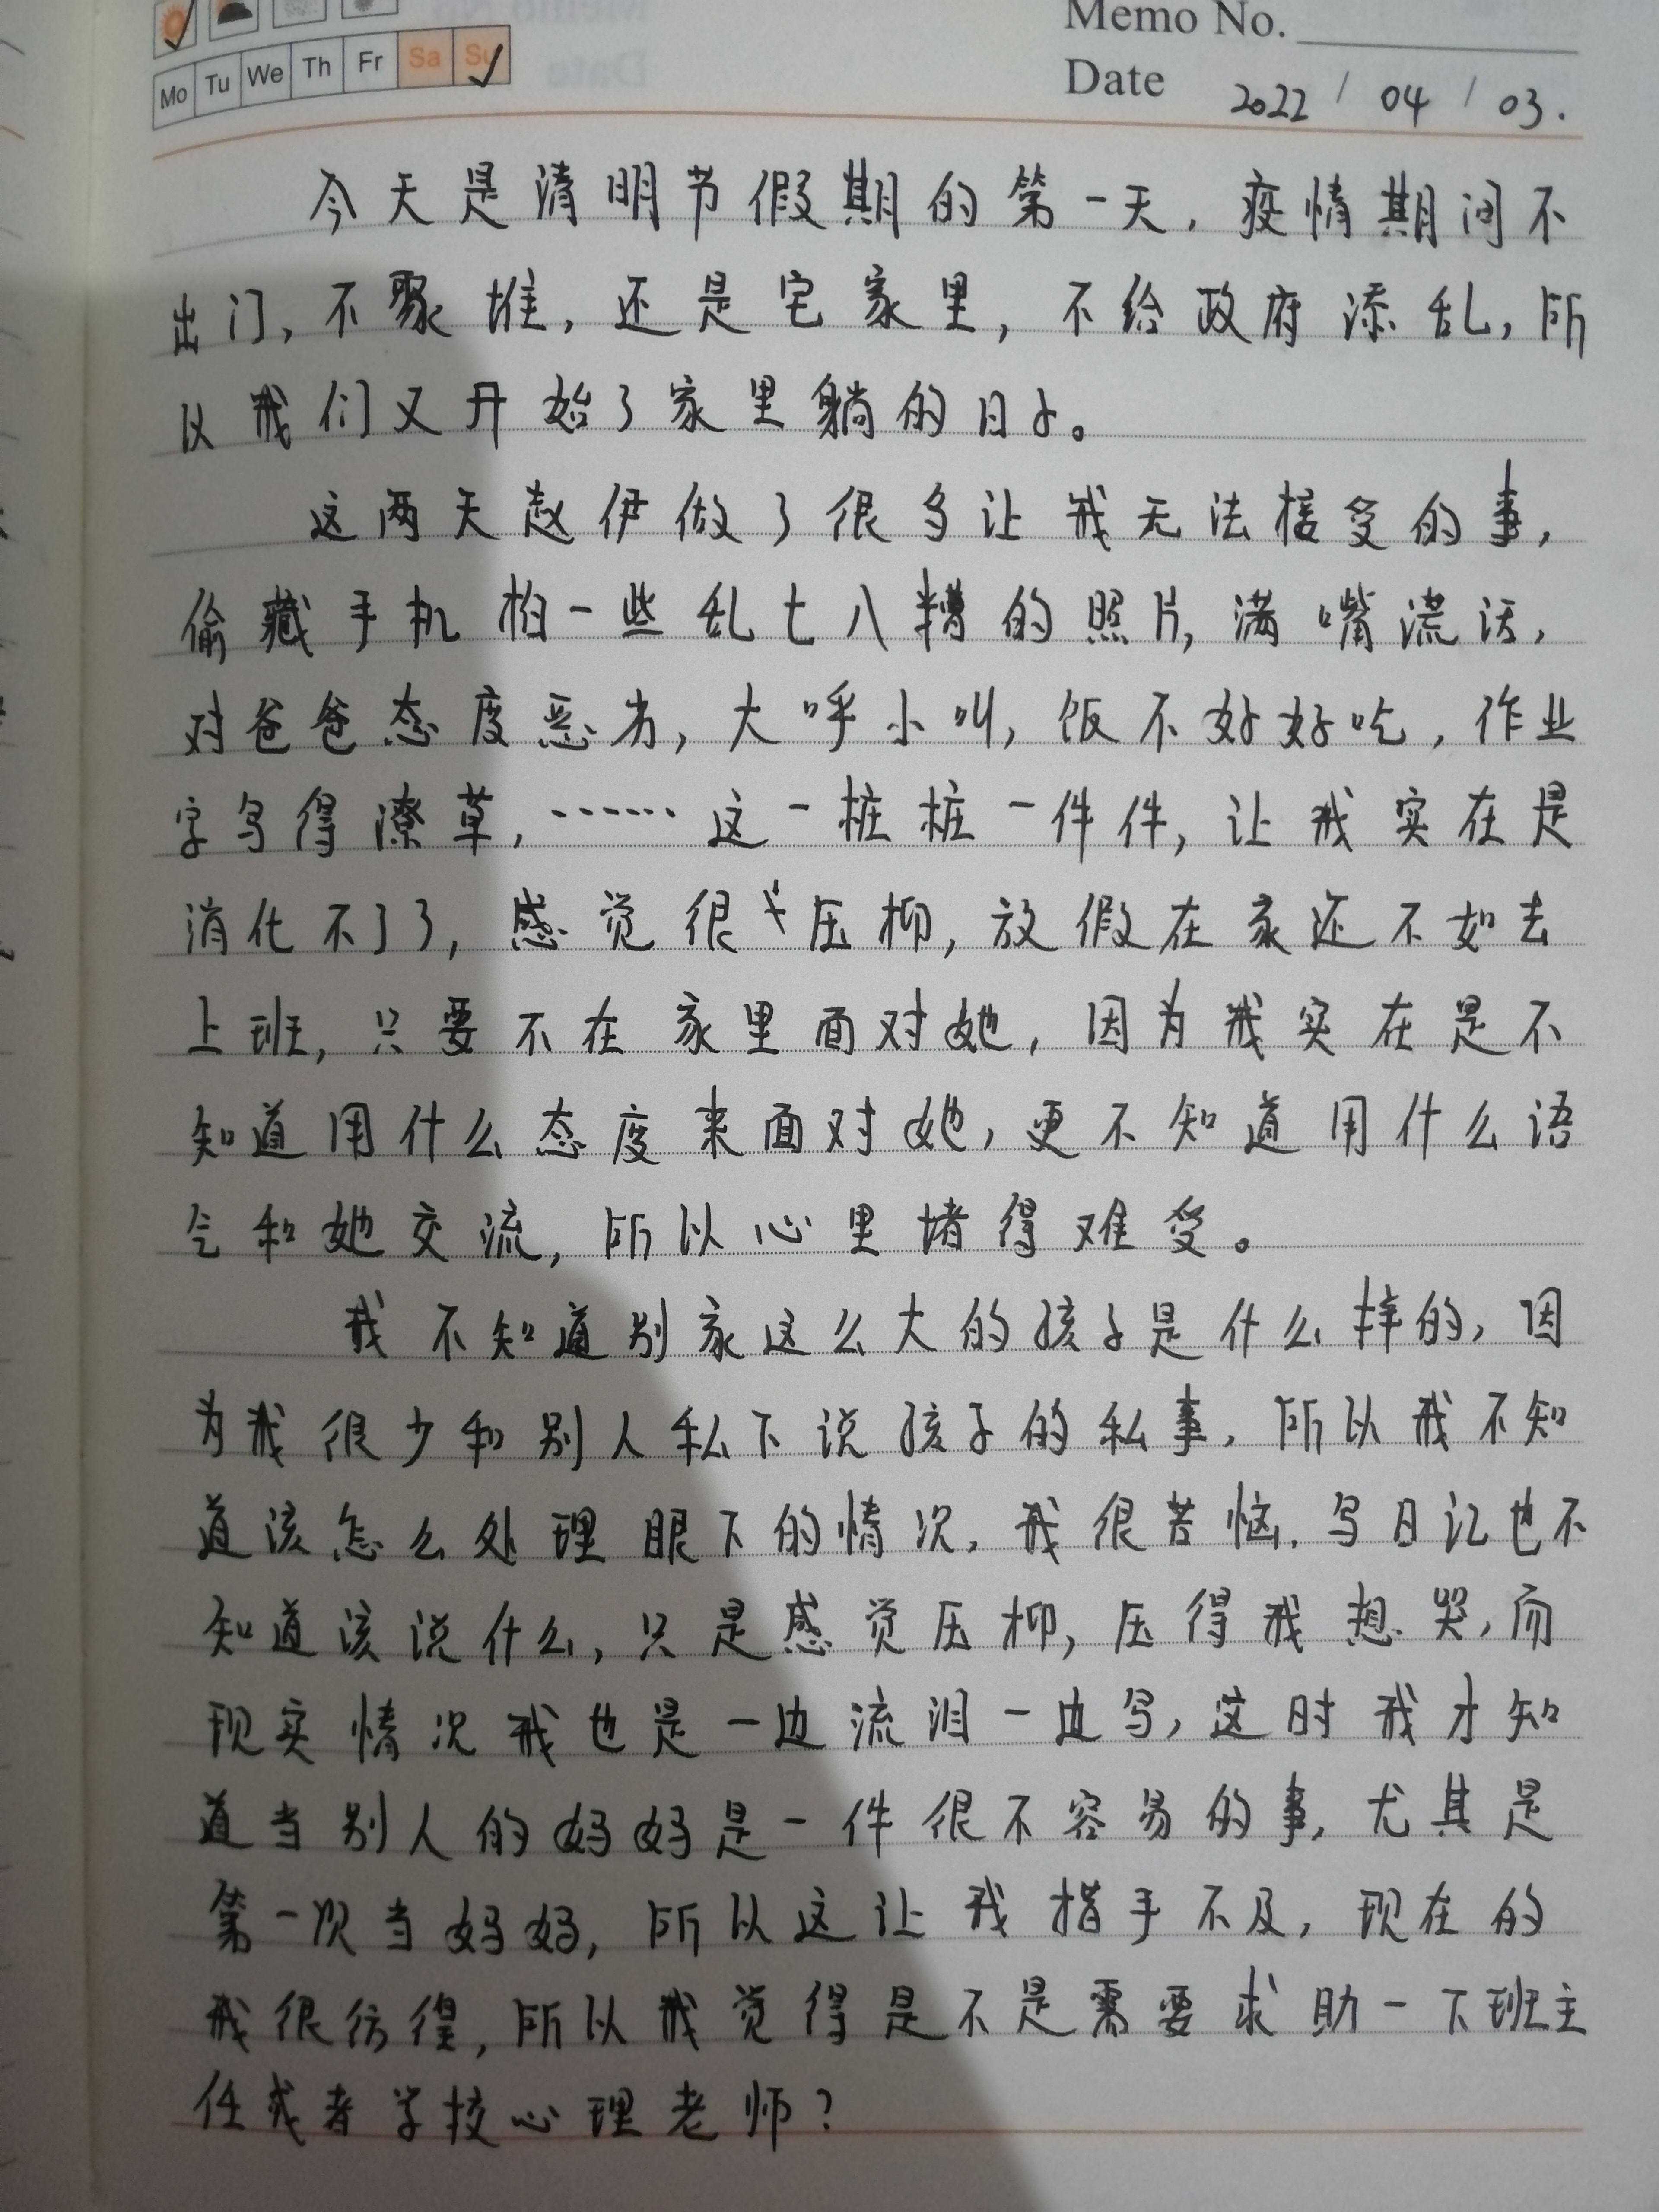 Memo No.
Mo Tu We Th Fr Sa Su
Date 2022 / 04 / 03.
今天是清明节假期的第一天，疫情期间不
出门，不聚堆，还是宅家里，不给政府添乱，所
以我们又开始了家里躺的日子。
这两天赵伊做了很多让我无法接受的事，
偷藏手机拍一些乱七八糟的照片，满嘴谎话，
对爸爸态度恶劣，大呼小叫，饭不好好吃，作业
字写得潦草，……这一桩桩一件件，让我实在是
消化不了了，感觉很压抑，放假在家还不如去
上班，只要不在家里面对她，因为我实在是不
知道用什么态度来面对她，更不知道用什么语
气和她交流，所以心里堵得难受。
我不知道别家这么大的孩子是什么样的，因
为我很少和别人私下说孩子的私事，所以我不知
道该怎么处理眼下的情况，我很苦恼，写日记也不
知道该说什么，只是感觉压抑，压得我想哭，而
现实情况我也是一边流泪一边写，这时我才知
道当别人的妈妈是一件很不容易的事，尤其是
第一次当妈妈，所以这让我措手不及，现在的
我很彷徨，所以我觉得是不是需要求助一下班主
任或者学校心理老师？